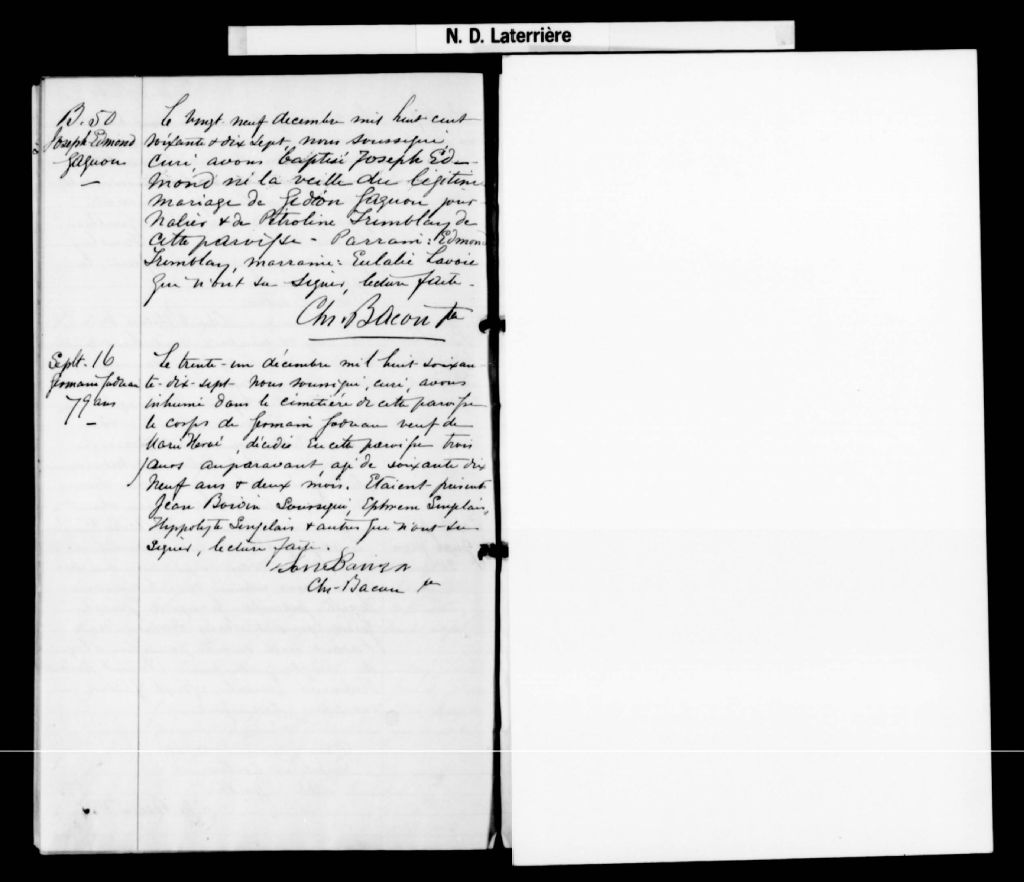 N. D. Laterrière
B. 50
Joseph Edmond
Gagnon
Le vingt neuf decembre mil huit cent
soixante & dix sept, nous soussigné,
curé avons baptisé Joseph Ed-
mond né la veille du légitime
mariage de Gédéon Gagnon jour-
nalier & de Pétroline Tremblay de
cette paroisse - Parrain: Edmond
Tremblay, marraine: Eulalie Lavoie
qui n'ont su signer, lecture faite -
Chs. Bacon Ptre
Seplt. 16
Germain
79 ans
Le trente-un décembre mil huit soixan-
te-dix-sept nous soussigné, curé, avons
inhumé dans le cimetière de cette paroisse
le corps de Germain veuf de
Marie Hervé, décédé en cette paroisse trois
jours auparavant, agé de soixante dix
neuf ans & deux mois. Etaient présents
Jean Boivin soussigné, Ephrem Singelais,
Hyppolyte Singelais & autres qui n'ont su
signer, lecture faite.
Chs. Bacon Ptre